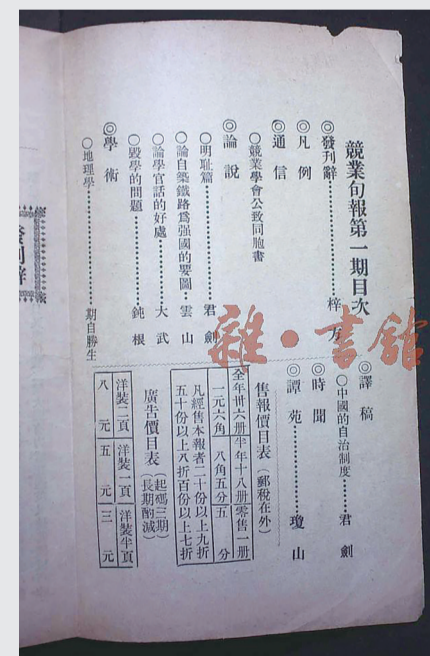 競業旬報第一期目次
◎發刊辭………梓方
◎凡例
◎通信
○競業學會公致同胞書
◎論說
○明恥篇………君劍
○論自築鐵路爲强國的要圖…雲山
○論學官話的好處………大武
○毀學的問題………鈍根
◎學術
○地理學………期自勝生
◎譯稿
○中國的自治制度………君劍
◎時聞
◎譚苑………瓊山
售報價目表(郵稅在外)
全年卅六册 半年十八册 零售一册
一元六角 八角五分 五分
凡經售本報者二十份以上九折
五十份以上八折百份以上七折
廣告價目表(起碼三期長期酌減)
洋裝二頁 洋裝一頁 洋裝半頁
八元 五元 三元
發刊辭
雜·書館